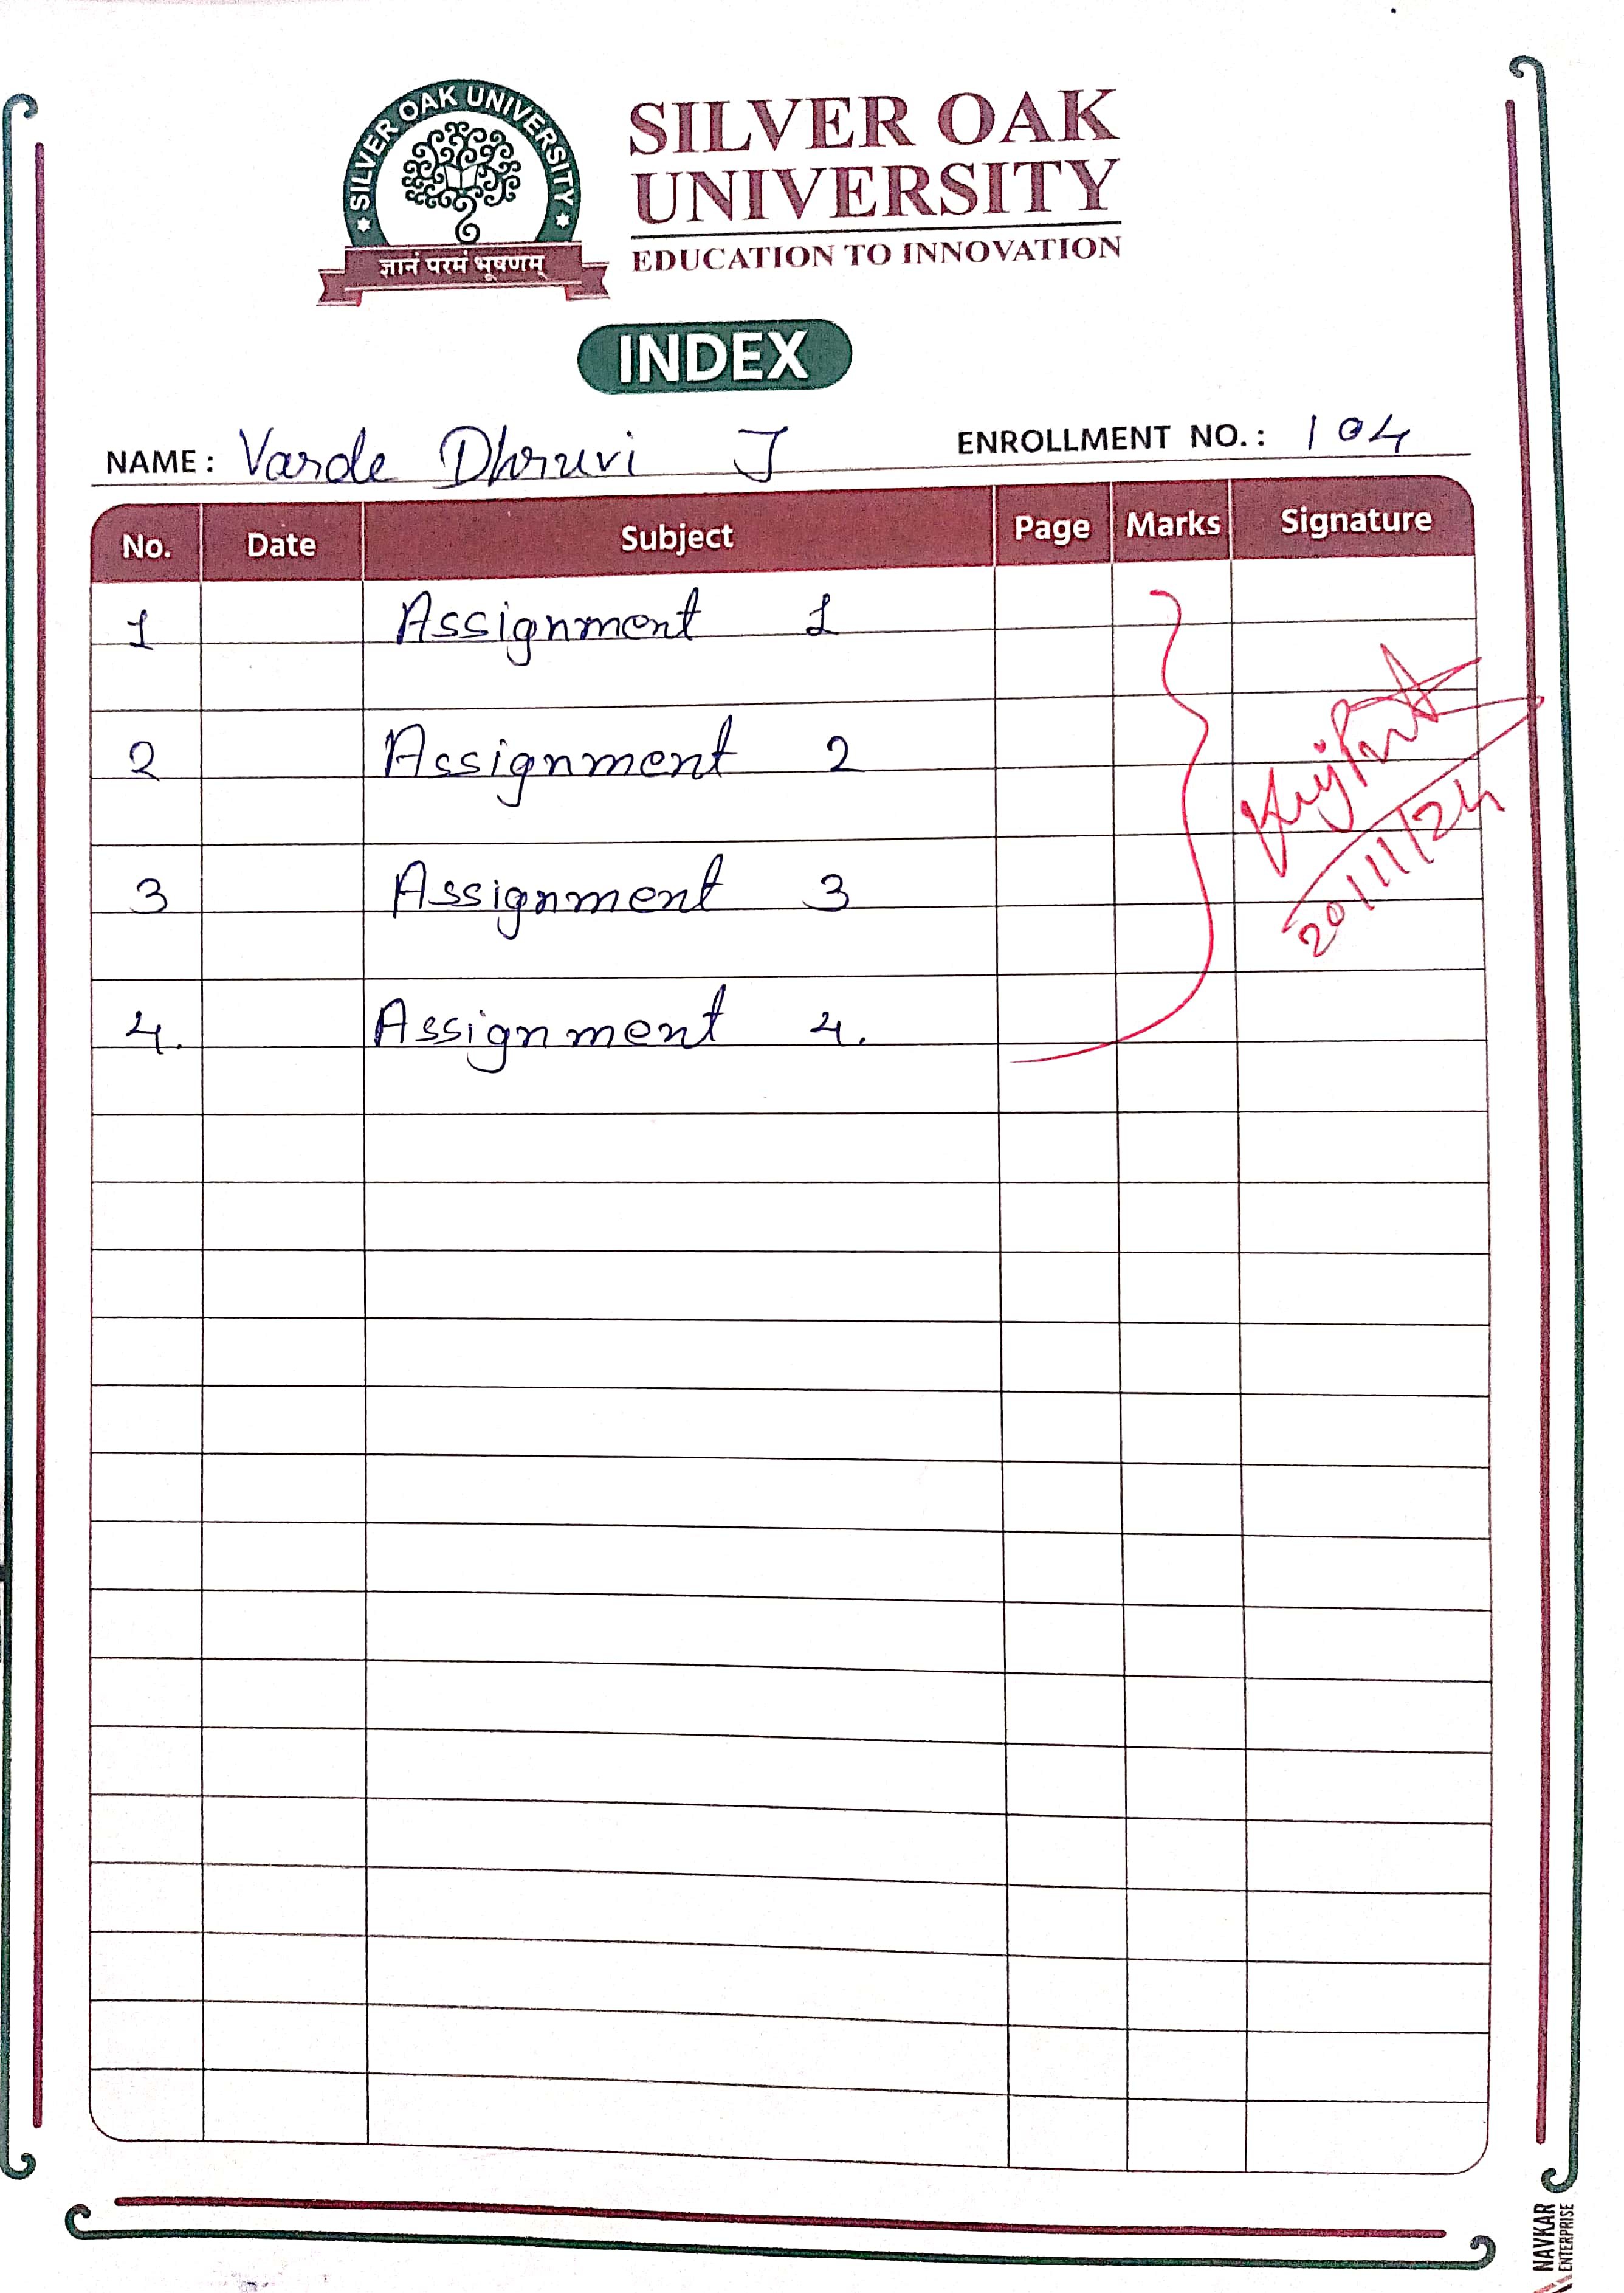 SILVER OAK UNIVERSITY
ज्ञानं परमं भूषणम्
SILVER OAK
UNIVERSITY
EDUCATION TO INNOVATION
INDEX
NAME: Varde Dhruvi J ENROLLMENT NO.: 104
No. Date Subject Page Marks Signature
1 Assignment 1
2 Assignment 2
3 Assignment 3
4. Assignment 4.
20/11/24
NAVKAR
ENTERPRISE